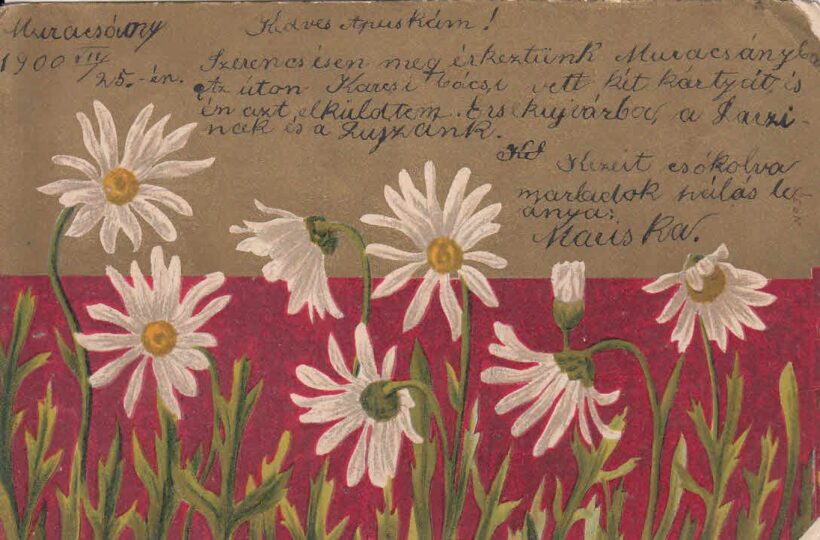 Muracsány
1900 VII/
25.-én.
Kedves Apuskám!
Szerencsésen meg érkeztünk Muracsányba
Az úton Karcsi bácsi vett két kartyát, és
én azt elküldtem Érsekujvárba, a Laczi-
nak és a Lujzának.
Kezeit csókolva
maradok hálás le-
ánya:
Mariska.